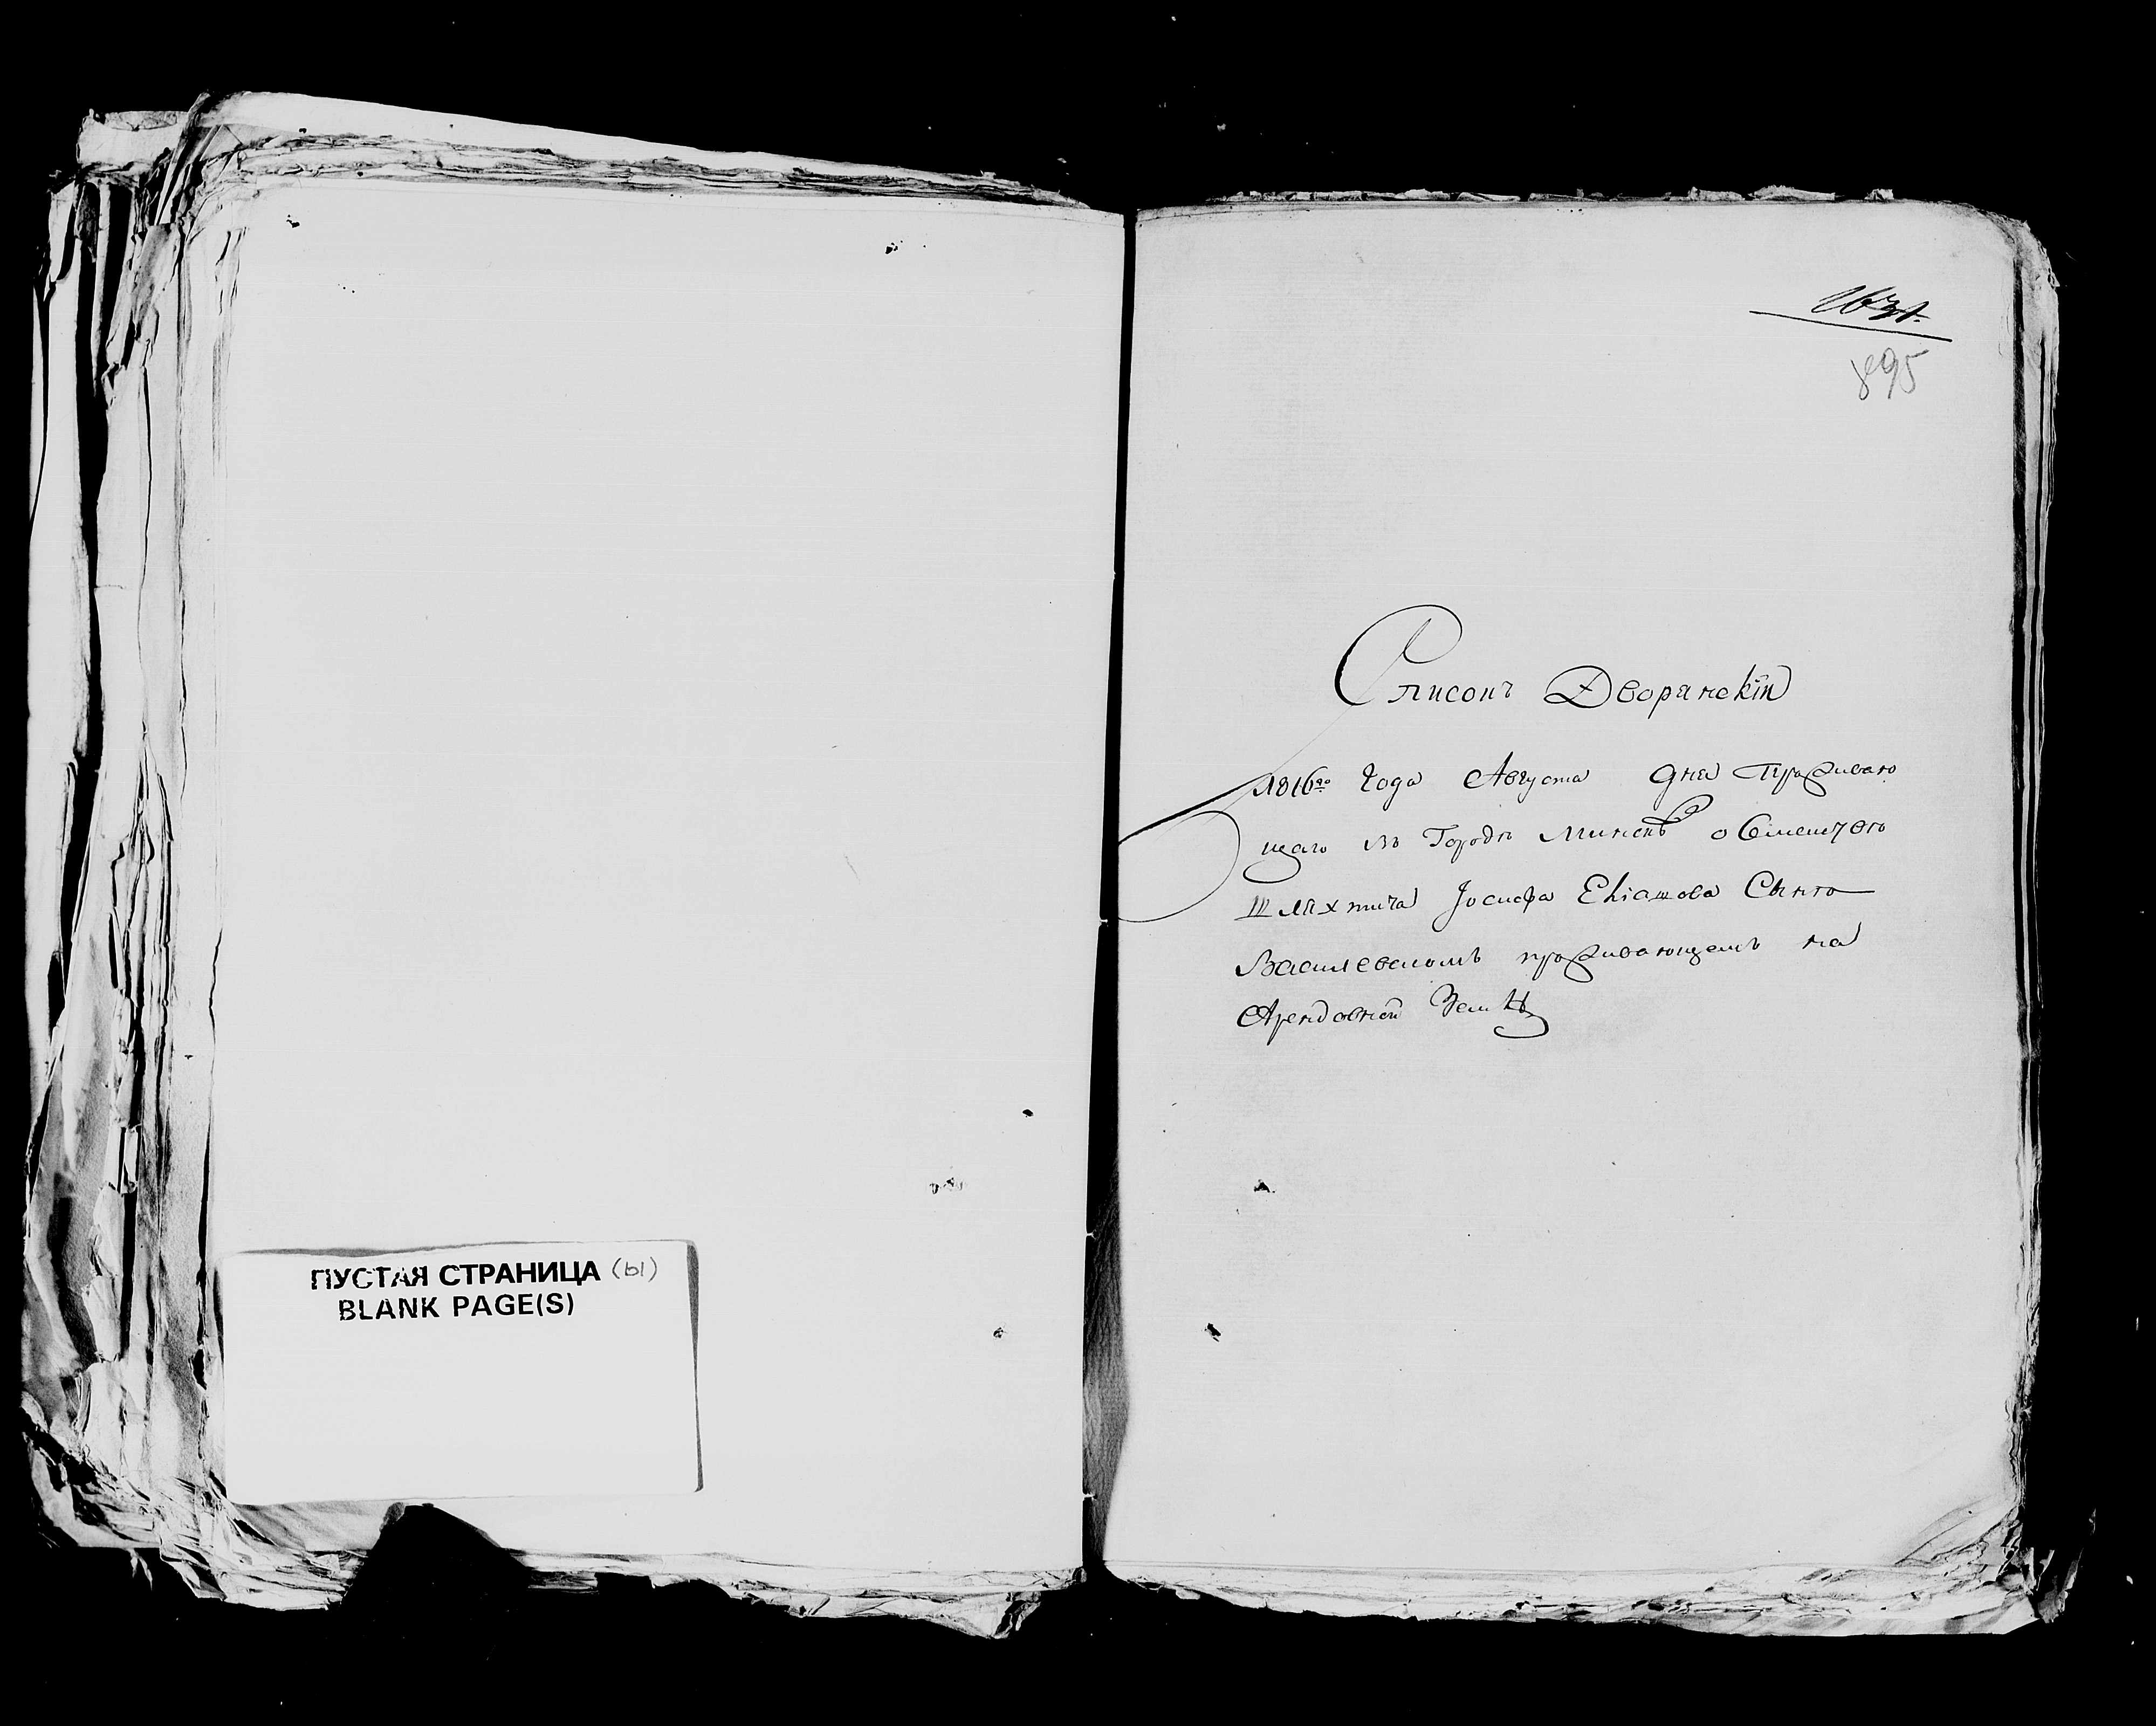 ПУСТАЯ СТРАНИЦА (ы)
BLANK PAGE(S)
895
Списокъ Дворянскiй
1816го Года Августа дня Проживаю
щаго въ Городѣ Минскѣ о
Шляхтича Iосифа Елiашова Сына
Василевскомъ проживающемъ на
Арендовной Землѣ